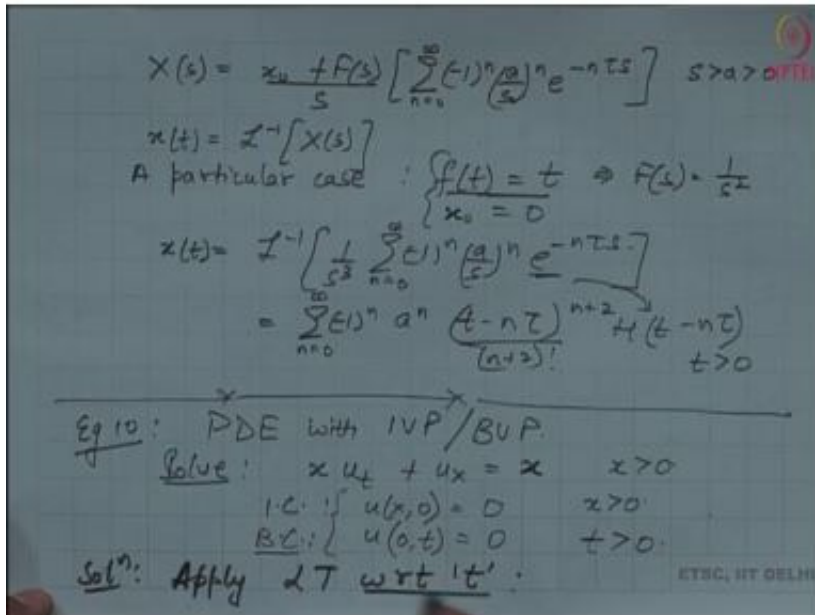 X(s) = (x₀ + F(s))/s [ ∑_{n=0}^{∞} (-1)ⁿ (a/s)ⁿ e^{-nτs} ] s>a>0
x(t) = ℒ⁻¹[X(s)]
A particular case : { f(t) = t ⇒ F(s) = 1/s²
x₀ = 0
x(t) = ℒ⁻¹[ 1/s³ ∑_{n=0}^{∞} (-1)ⁿ (a/s)ⁿ e^{-nτs} ]
= ∑_{n=0}^{∞} (-1)ⁿ aⁿ (t-nτ)^{n+2}/(n+2)! H(t-nτ)
t>0
Eg 10: PDE with IVP/BVP.
Solve: x u_t + u_x = x x>0
I.C.: { u(x,0) = 0 x>0.
B.C.: { u(0,t) = 0 t>0.
Solⁿ: Apply LT wrt 't' :
ETSC, IIT DELHI